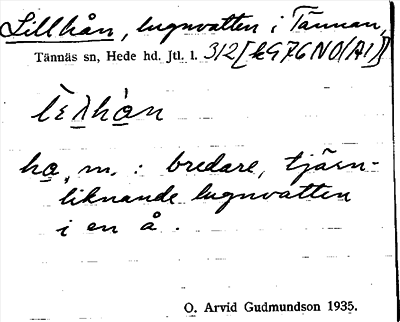 Lillhån, lugnvatten i Tännan,
Tännäs sn, Hede hd. Jtl. l. 312 [k976NO(A1)]
ho, m. : bredare, tjärn-
liknande lugnvatten
i en å.
O. Arvid Gudmundson 1935.